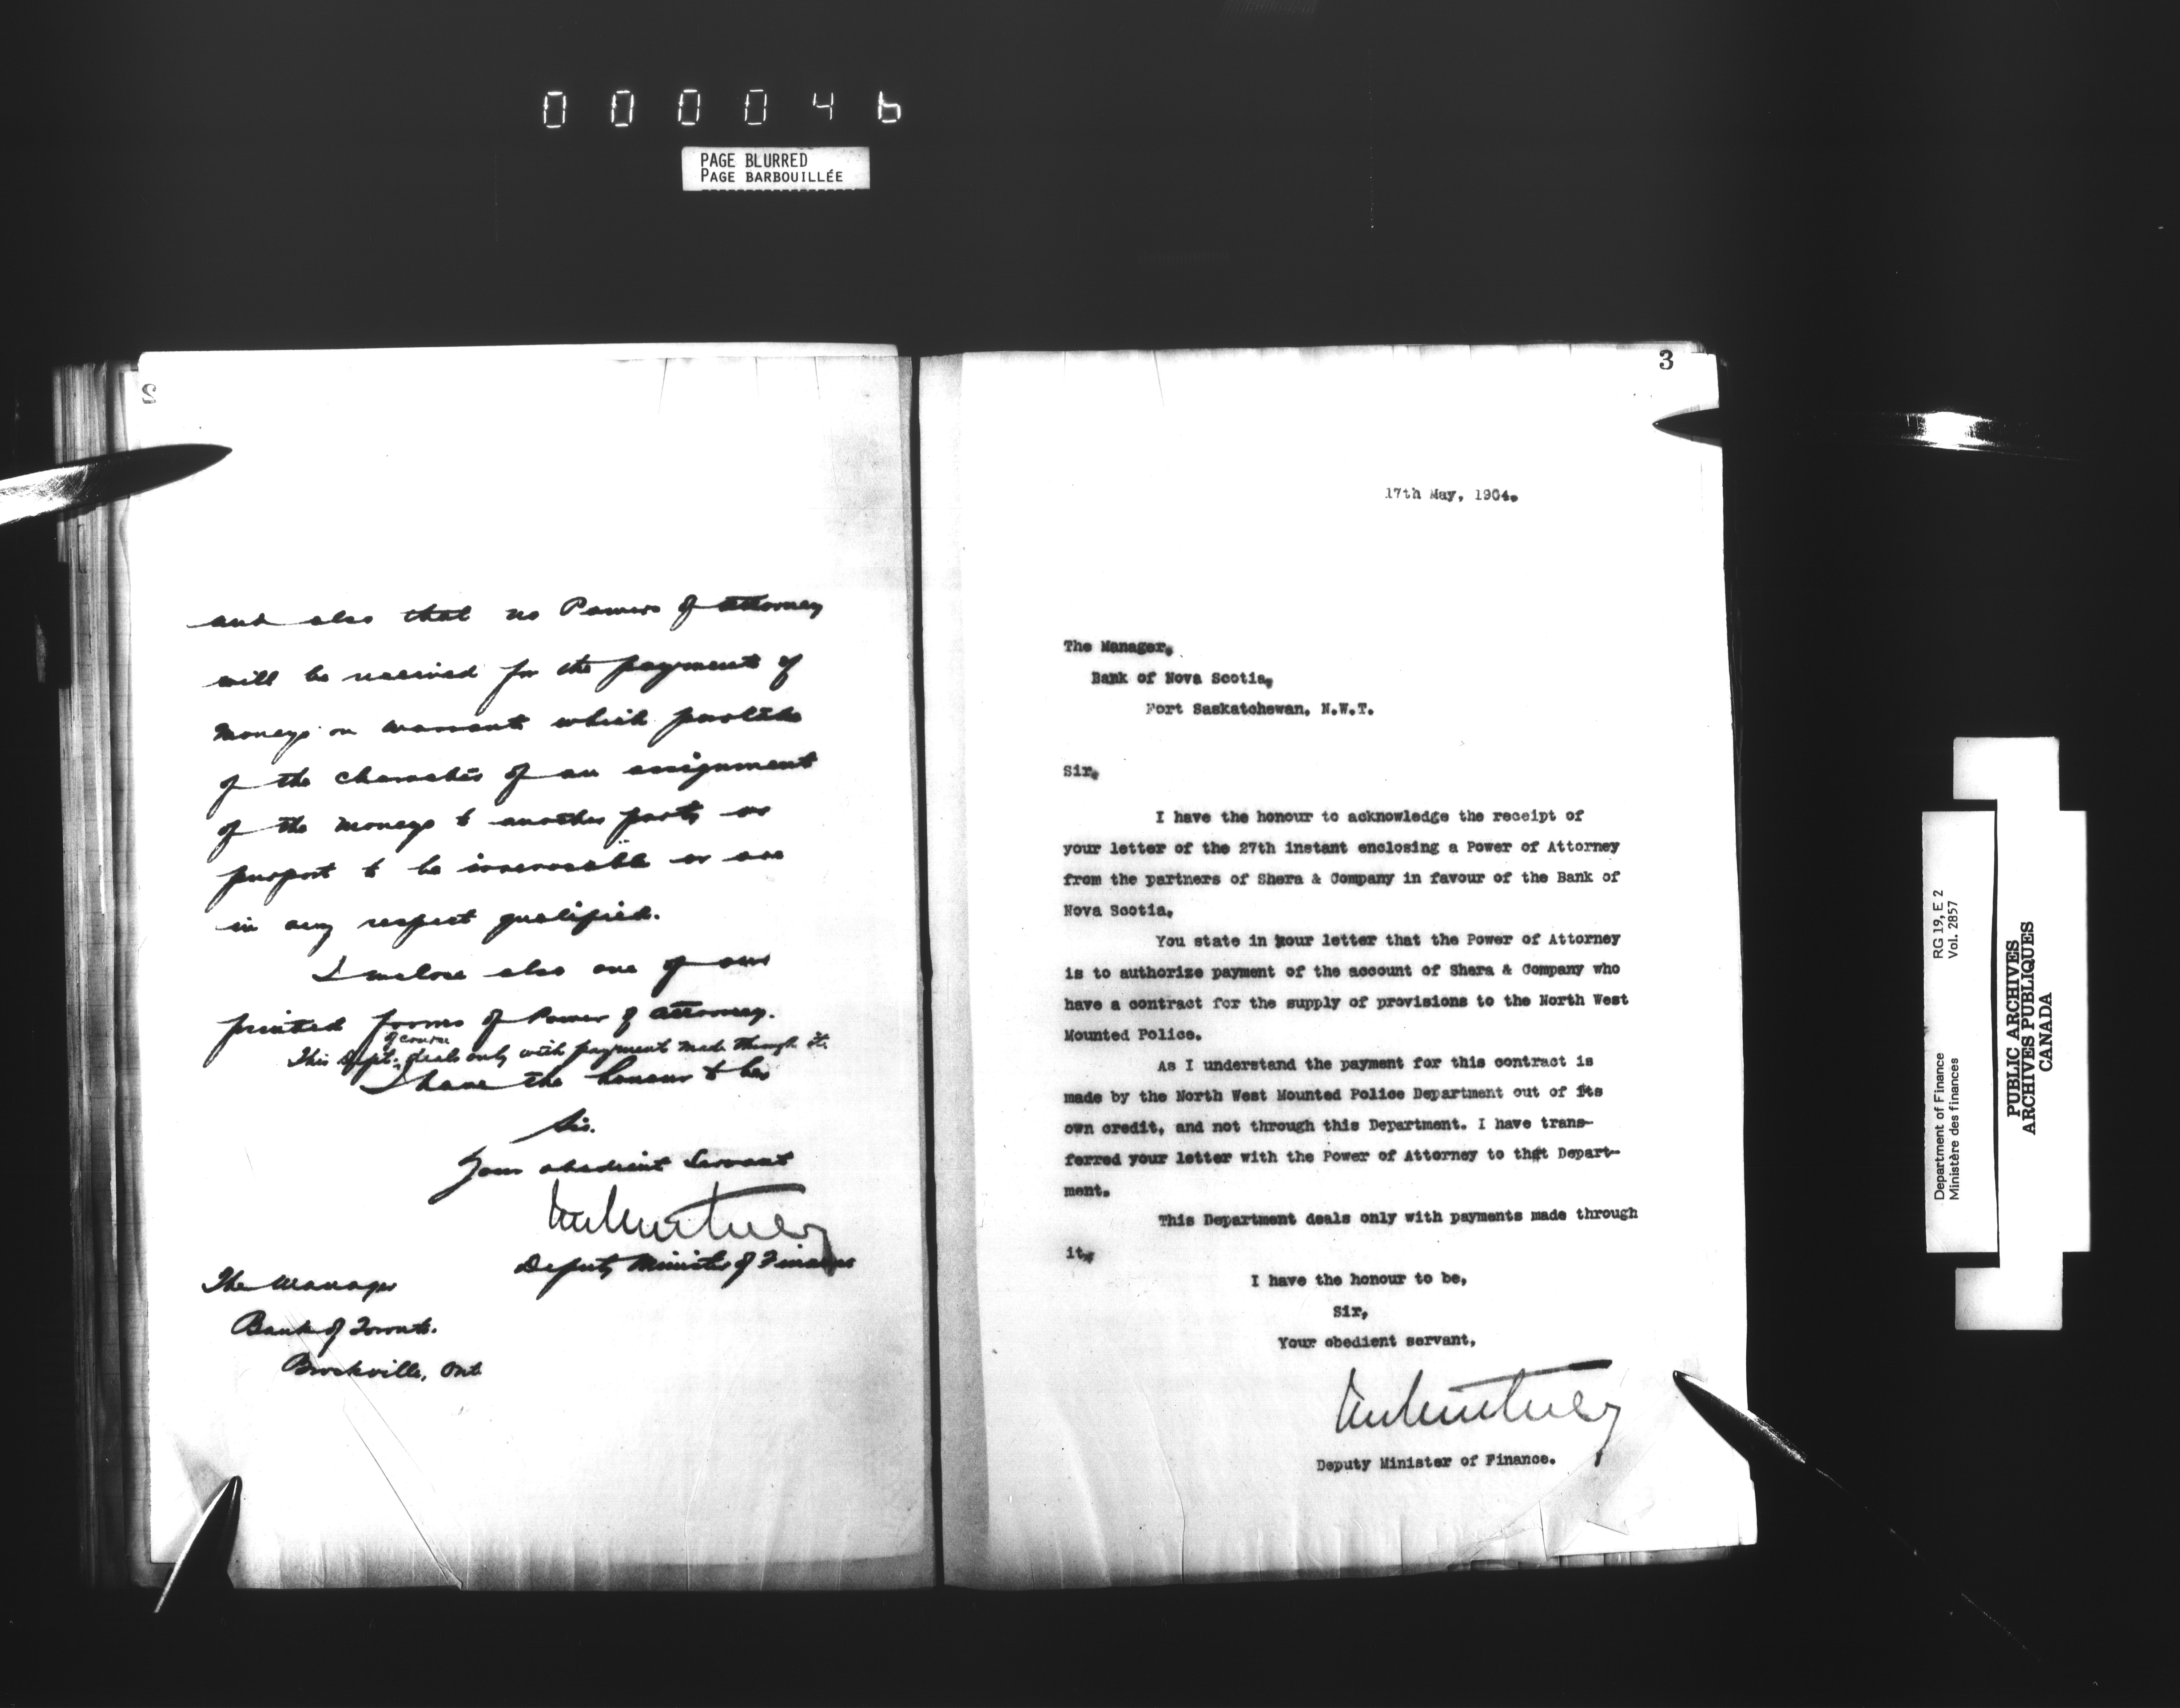 000046
PAGE BLURRED
PAGE BARBOUILLÉE
2
and also that no Powers of attorney
will be received for the payment of
moneys on warrants which partake
of the character of an assignment
of the moneys to another party or
purport to be irrevocable or are
in any respect qualified.
I enclose also one of our
printed forms of Power of attorney.
of course
This Dept. deals only with payments made through it.
I have the honour to be
Sir.
Your obedient Servant
Deputy Minister of Finance
The Manager
Bank of Toronto.
Brockville, Ont
3
17th May, 1904.
The Manager,
Bank of Nova Scotia,
Fort Saskatchewan, N.W.T.
Sir,
I have the honour to acknowledge the receipt of
your letter of the 27th instant enclosing a Power of Attorney
from the partners of Shera & Company in favour of the Bank of
Nova Scotia.
You state in your letter that the Power of Attorney
is to authorize payment of the account of Shera & Company who
have a contract for the supply of provisions to the North West
Mounted Police.
As I understand the payment for this contract is
made by the North West Mounted Police Department out of its
own credit, and not through this Department. I have trans-
ferred your letter with the Power of Attorney to that Depart-
ment.
This Department deals only with payments made through
it.
I have the honour to be,
Sir,
Your obedient servant,
Deputy Minister of Finance.
Department of Finance
Ministère des finances
RG 19, E 2
Vol. 2857
PUBLIC ARCHIVES
ARCHIVES PUBLIQUES
CANADA